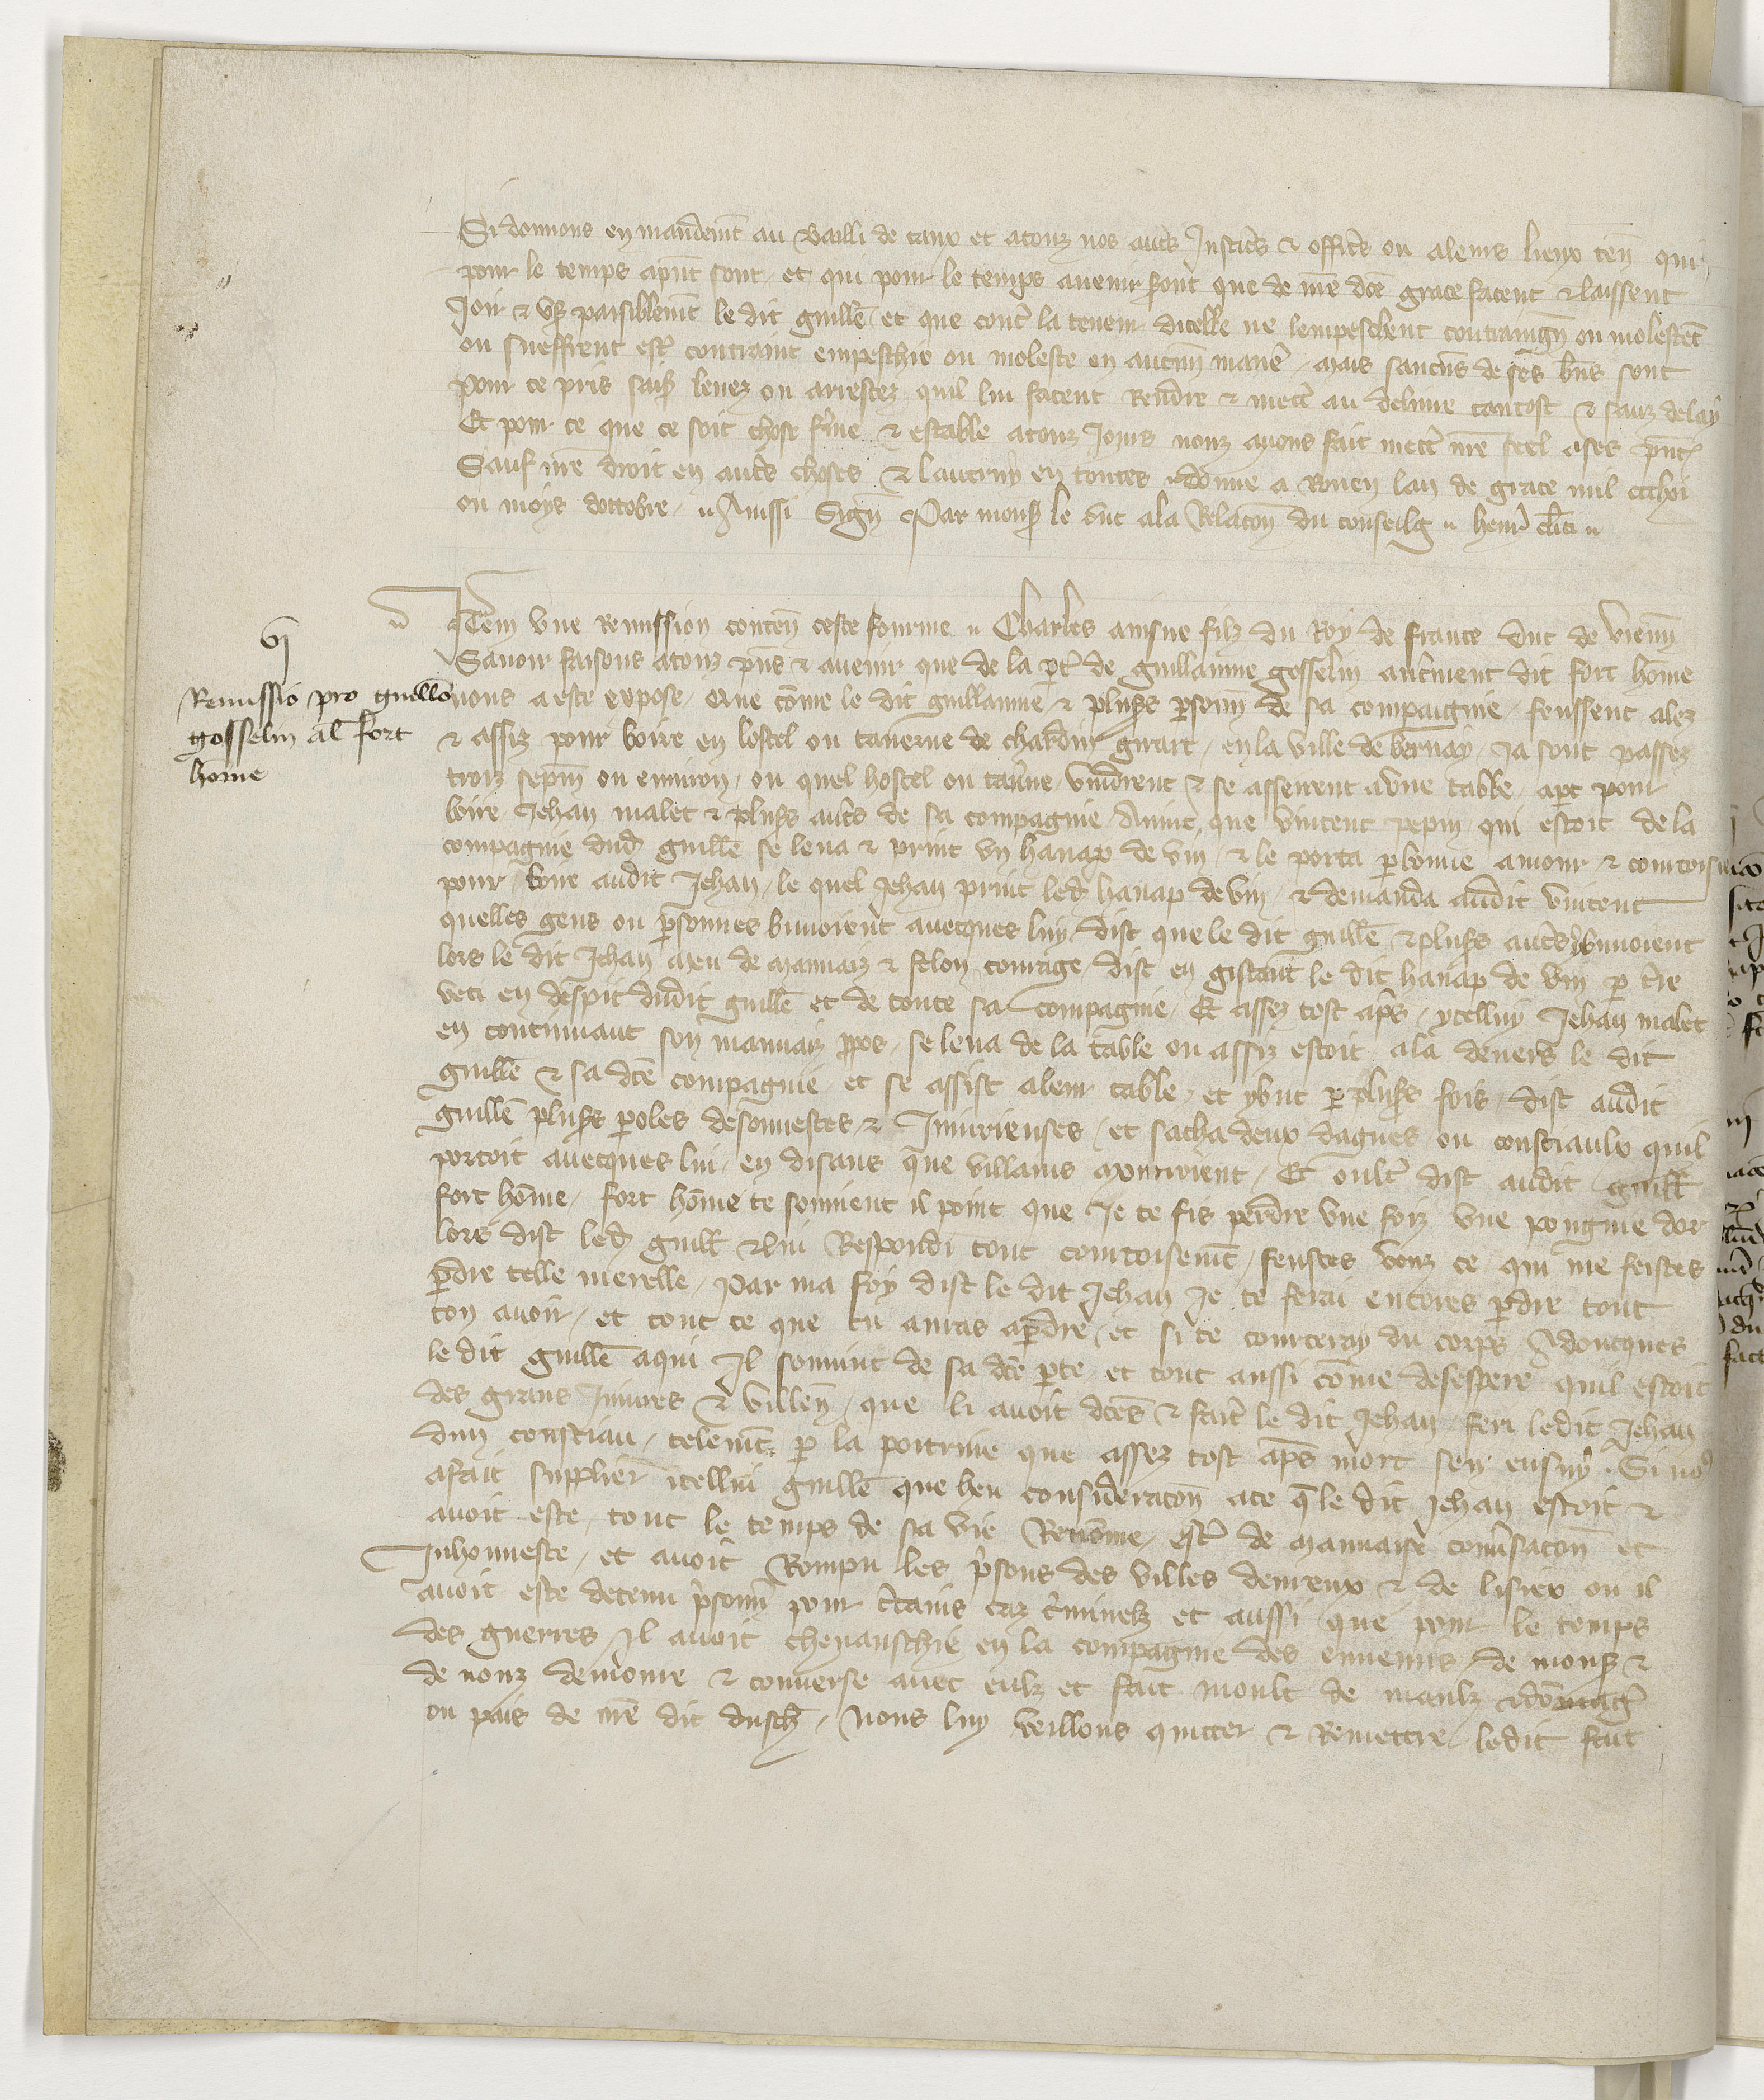 Si donnons en mandemt au bailli de caux et a touz nos autrs Justicrs & officrs ou a leurs lieux ten qui
pour le temps apñt sont et qui pour le temps avenir seront que de nrē dcē grace facent & laissent
Joir & usr paisiblemt le dit guillē et que contr la teneur dicelle ne lempeschent contraingn ou molestēt
ou sueffrent estr contraint empeschie ou moleste en aucun manier mais saucuns de ses biēs sont
pour ce pris saisis levez ou arrestez quil lui facent Rendre & mectr au delivre tantost & sanz delay
Et pour ce que ce soit chose ferme & estable a touz Jours nouz avons fait mectr nrē seel a ses pñtes
Sauf nrē droit en autrs choses & lautruy en toutes donne a Rouen lan de grace mil ccclvi
ou moys doctobre Aussi Signe Par monsr le duc a la Relacon du conseilg henr clici
Item une remission conten ceste fourme Charles ainsne filz du Roy de france duc de
Savoir faisons a touz pñs & avenir que de la prt de guillaume gosselin autrement dit fort hōme
vi
Remissio pro guillo
gosselin al fort
hōme
nous a este expose que cōme le dit guillaume & plusrs personn de sa compaignie feussent alez
& assiz pour boire en lostel ou taverne de chardin girart en la ville de bernay Ja sont passez
troiz sepm ou environ ou quel hostel ou tavrne vindrent & se asseirent a une table apt pour
boire Jehan malet & plusrs autrs de sa compagnie Avint que vincent pepin qui estoit de la
compagnie dud guillē se leva & print un hanap de vin & le porta par bonne amour & courtoisie
pour boire audit Jehan le quel Jehan print led hanap de vin & demanda audit vincent
quelles gens ou personnes buvoient avecques luy dist que le dit guillē & plusrs autrs y buvoient
lors le dit Jehan meu de mauvaiz & felon courage dist en gistant le dit hanap de vin pr tre
veci en despit dudit guillē et de toute sa compagnie Et assez tost aprs ycelluy Jehan malet
en continuant son mauvaiz propos se leva de la table ou assiz estoit ala devers le dit
guillē & sa dcē compagnie et se assist a leur table et y but pr plusrs fois dist audit
guillē plusrs paroles desonnestes & Injurieuses et sacha deux dagues ou coustiaulx quil
portoit avecques lui en disans que villains mourroient Et oultr dist audit guillē
fort hōme fort hōme te souvient il point que Je te fis perdre une foiz une pongnie dor
lors dist led guillē & lui Respondi tout courtoisemt feustes vouz ce qui me feistes
perdre telle merelle Par ma foy dist le dit Jehan Je te ferai encores perdre tout
ton avoir et tout ce que tu auras a perdre et si te courceray du corps Adoncques
le dit guillē a qui Il souvint de sa dcē perte et tout aussi cōme desespere quil estoit
des grans Injures & villen que li avoit dctes & faites le dit Jehan feri ledit Jehan
dun coustiau telemt pr la poitrine que assez tost aprs mort sen ensuy Si nos
a fait supplier icellui guillē que heu consideracon a ce q̄ le dit Jehan estoit &
avoit este tout le temps de sa vie Renōme estr de mauvaise conversacon et
Inhonneste et avoit Rompu les prisons des villes deureux & de lisiex ou il
avoit este detenu prisonnr pour certains caz criminelz et aussi que pour le temps
des guerres Il avoit chevauschie en la compagnie des ennemis de monsr &
de nouz demoure & converse avec eulz et fait moult de maulz & dōmages
ou pais de nrē dit duschē Nous luy veillons quitter & Remettre ledit fait